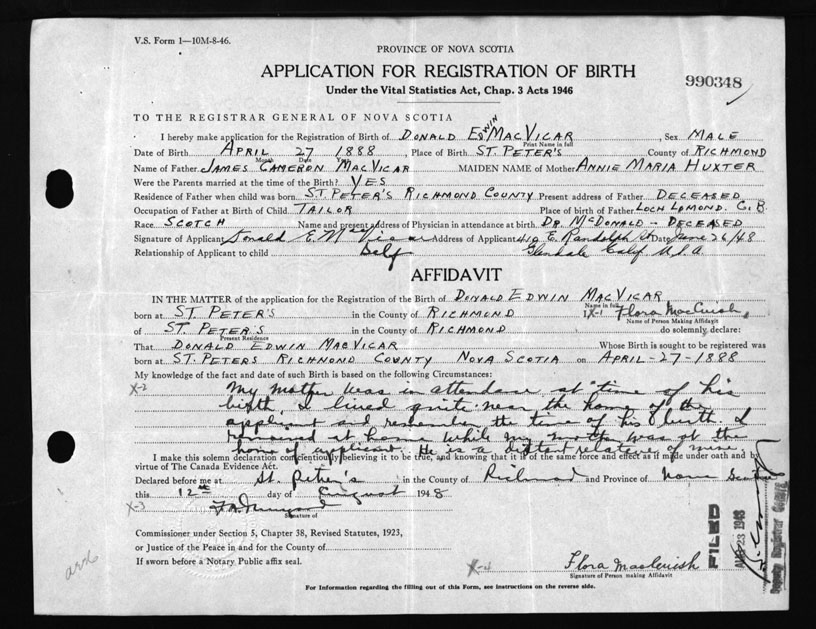 V.S. Form 1—10M-8-46.
PROVINCE OF NOVA SCOTIA
APPLICATION FOR REGISTRATION OF BIRTH
990348
Under the Vital Statistics Act, Chap. 3 Acts 1946
TO THE REGISTRAR GENERAL OF NOVA SCOTIA
I hereby make application for the Registration of Birth of DONALD EDWIN MACVICAR, Sex MALE
Print Name in full
Date of Birth APRIL 27 1888, Place of Birth ST. PETER'S County of RICHMOND
Month Date Year
Name of Father JAMES CAMERON MACVICAR MAIDEN NAME of Mother ANNIE MARIA HUXTER
Were the Parents married at the time of the Birth? YES
Residence of Father when child was born ST. PETER'S RICHMOND COUNTY Present address of Father DECEASED
Occupation of Father at Birth of Child TAILOR Place of birth of Father LOCH LOMOND. C.B.
Race SCOTCH Name and present address of Physician in attendance at birth DR. MCDONALD - DECEASED
Signature of Applicant Donald E. MacVicar Address of Applicant 419 E. Randolph St Date June 26/48
Relationship of Applicant to child Self Glendale Calif. U.S.A.
AFFIDAVIT
IN THE MATTER of the application for the Registration of the Birth of DONALD EDWIN MACVICAR
Name in full
born at ST. PETER'S in the County of RICHMOND I X-1 Flora MacCuish,
Name of Person Making Affidavit
of ST. PETER'S in the County of RICHMOND do solemnly declare:
Present Residence
That DONALD EDWIN MACVICAR Whose Birth is sought to be registered was
born at ST. PETERS RICHMOND COUNTY NOVA SCOTIA on APRIL-27-1888
My knowledge of the fact and date of such Birth is based on the following Circumstances:
X-2 My mother was in attendance at time of his
birth, I lived quite near the home of the
applicant and remember the time of his birth. I
remained at home while my mother was at the
home of applicant. He is a distant relative of mine.
I make this solemn declaration conscientiously believing it to be true, and knowing that it is of the same force and effect as if made under oath and by
virtue of The Canada Evidence Act.
Declared before me at St. Peter's in the County of Richmond and Province of Nova Scotia
this 12th day of August 1948
X-3
Signature of
Commissioner under Section 5, Chapter 38, Revised Statutes, 1923,
or Justice of the Peace in and for the County of
If sworn before a Notary Public affix seal.
X-4 Flora MacCuish
Signature of Person making Affidavit
FILED
AUG 23 1948
Deputy Registrar General
For Information regarding the filling out of this Form, see instructions on the reverse side.